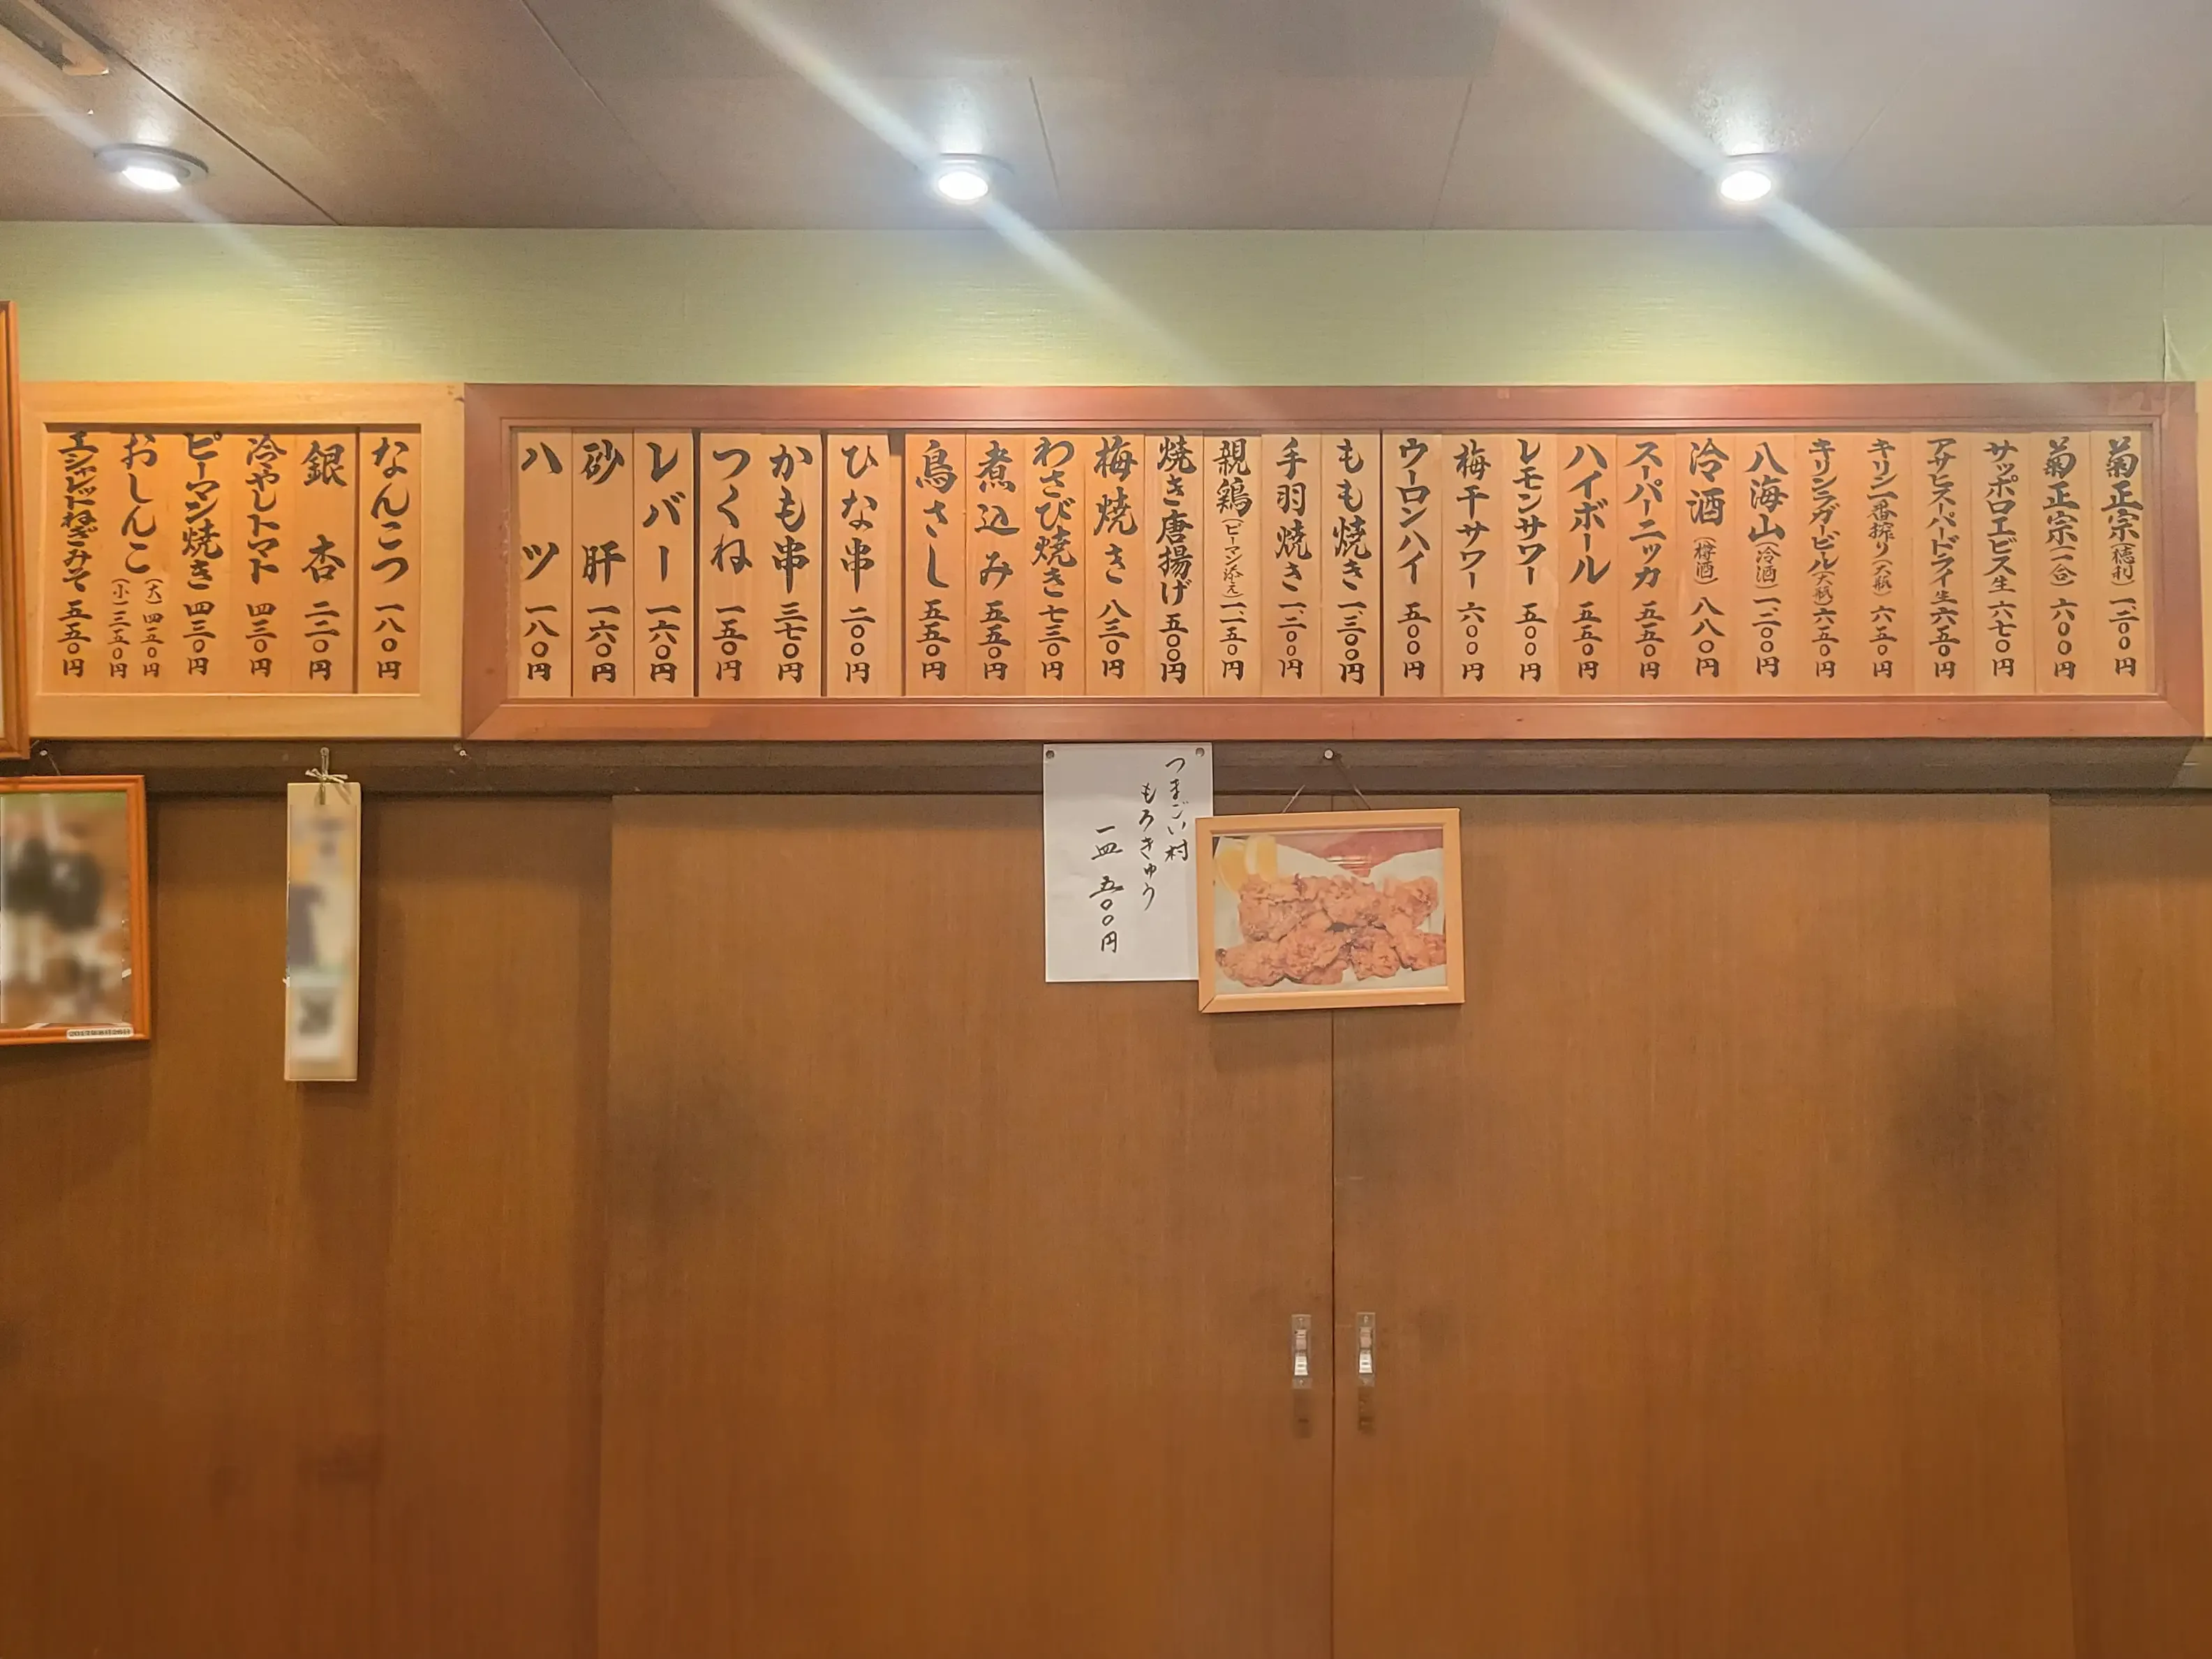 菊正宗(徳利)一、二〇〇円
菊正宗(一合)六〇〇円
サッポロエビス生六七〇円
アサヒスーパードライ生六五〇円
キリン一番搾り(大瓶)六五〇円
キリンラガービル(大瓶)六五〇円
八海山(冷酒)一、二〇〇円
冷酒(樽酒)八八〇円
スーパーニッカ五五〇円
ハイボール五五〇円
レモンサワー五〇〇円
梅干サワー六〇〇円
ウーロンハイ五〇〇円
もも焼き一、三〇〇円
手羽焼き一、二〇〇円
親鶏(ピーマン添え)一、二五〇円
焼き唐揚げ五〇〇円
梅焼き八三〇円
わさび焼き七三〇円
煮込み五五〇円
鳥さし五五〇円
ひな串二〇〇円
かも串三七〇円
つくね一五〇円
レバー一六〇円
砂肝一六〇円
ハツ一八〇円
なんこつ一八〇円
銀杏二二〇円
冷やしトマト四三〇円
ピーマン焼き四三〇円
おしんこ(大)四五〇円
(小)二三五〇円
エシャレットねぎみそ五五〇円
つまごい村
もろきゅう
一皿 五〇〇円